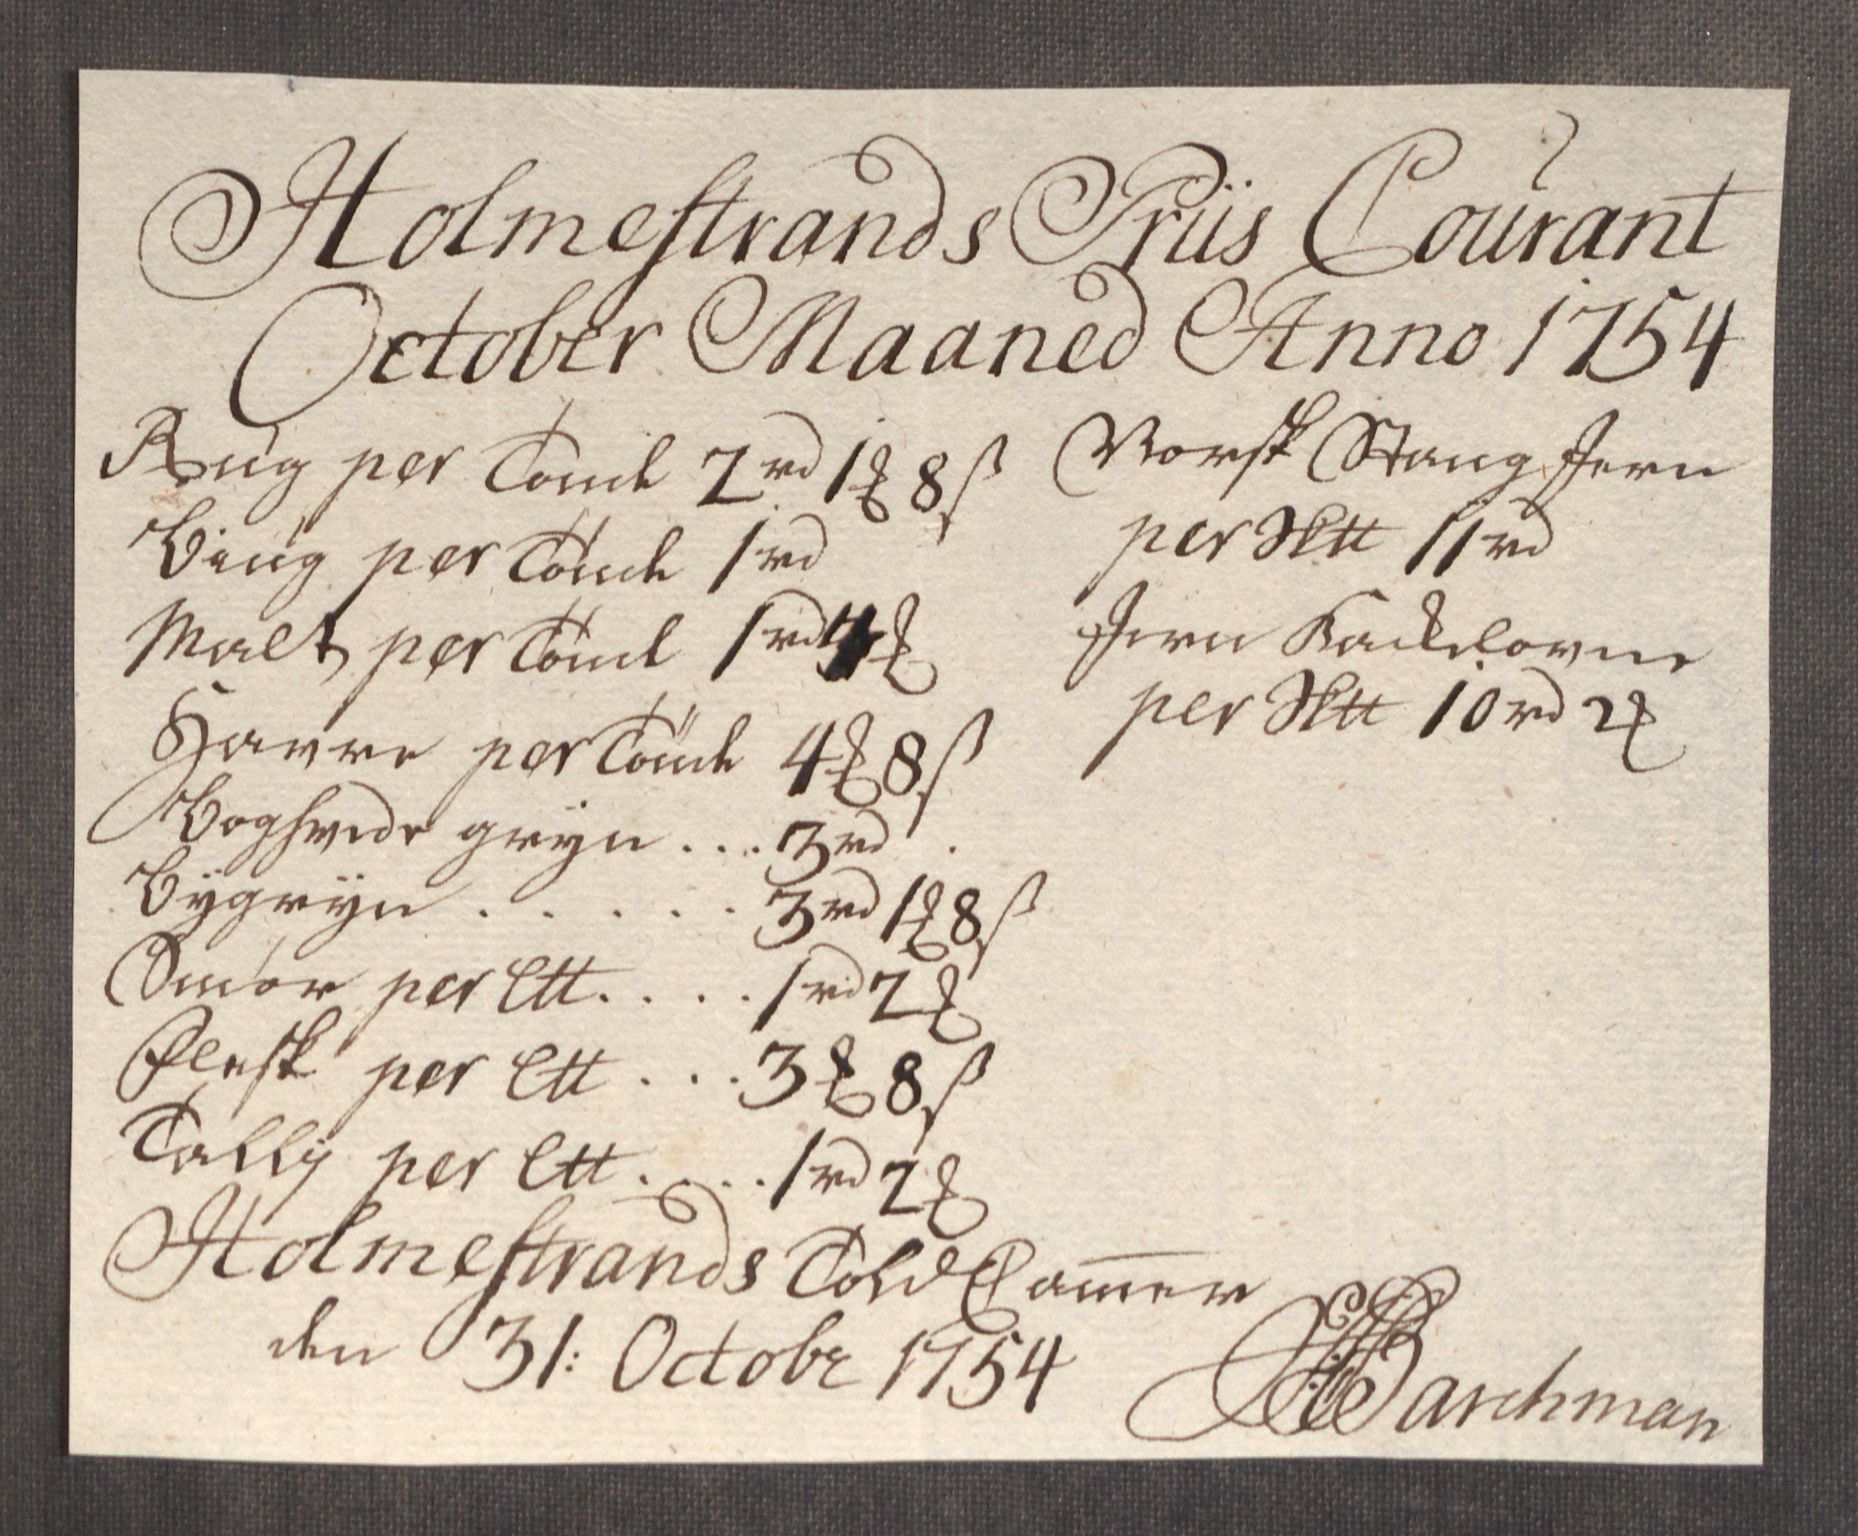 Holmestrands Priis Courant
October Maaned Anno 1754
Rug per Tønde 2 rd 1 ℔ 8 ß
Biug per Tønde 1 rd
Malt per Tønde 1 rd ℔
Havre per Tønde 4 ℔ 8 ß
Boghvede gryn . . . 3 rd
Bÿgrÿn . . . . . . 3 rd 1 ℔ 8 ß
Smør per Ltt . . . . 1 rd 2 ℔
Flesk per Ltt . . . 3 ℔ 8 ß
Tallig per Ltt . . . . 1 rd 2 ℔
Norsk Stang Jern
per Sktt 11 rd
Jern Kackelovne
per Sktt 10 rd 2 ℔
Holmestrands Told Cam̅er
den 31: Octobr 1754
Barchman